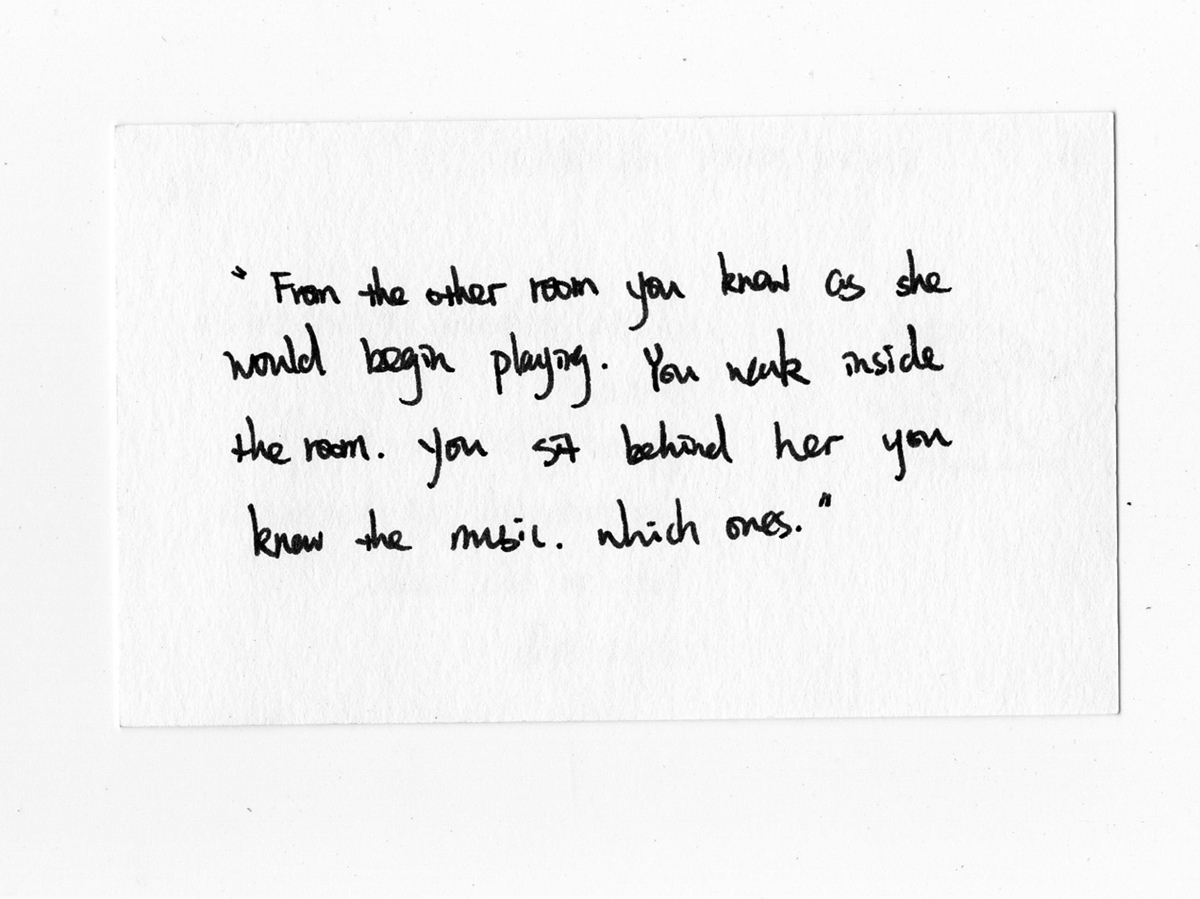 " From the other room you know as she
would begin playing. You walk inside
the room. You sit behind her you
know the music. which ones."